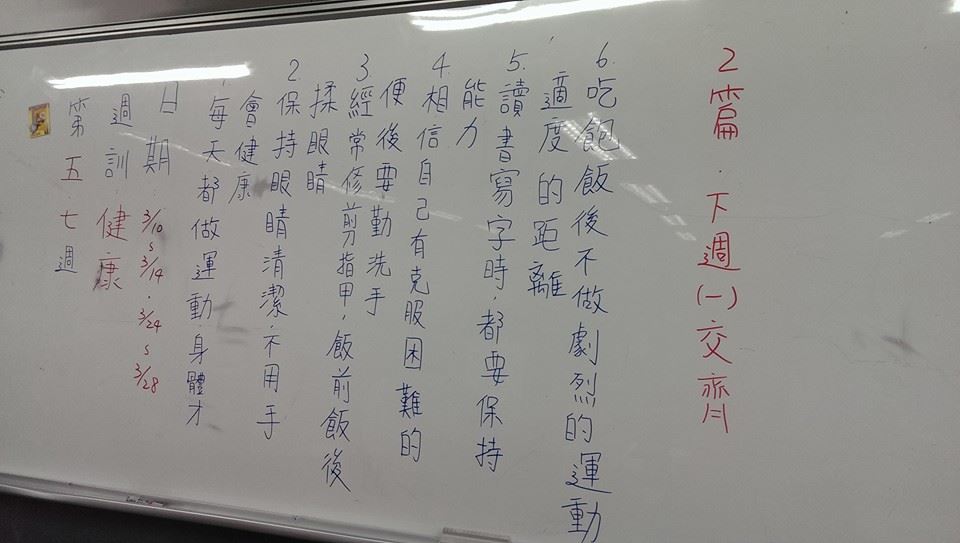 第五.七週
週訓.健康
日期 3/10~3/14.3/24~3/28
1.每天都做運動.身體才
會健康
2.保持眼睛清潔.不用手
揉眼睛
3.經常修剪指甲,飯前飯後
便後要勤洗手
4.相信自己有克服困難的
能力
5.讀書寫字時.都要保持
適度的距離
6.吃飽飯後不做劇烈的運動
2篇.下週(一)交齊